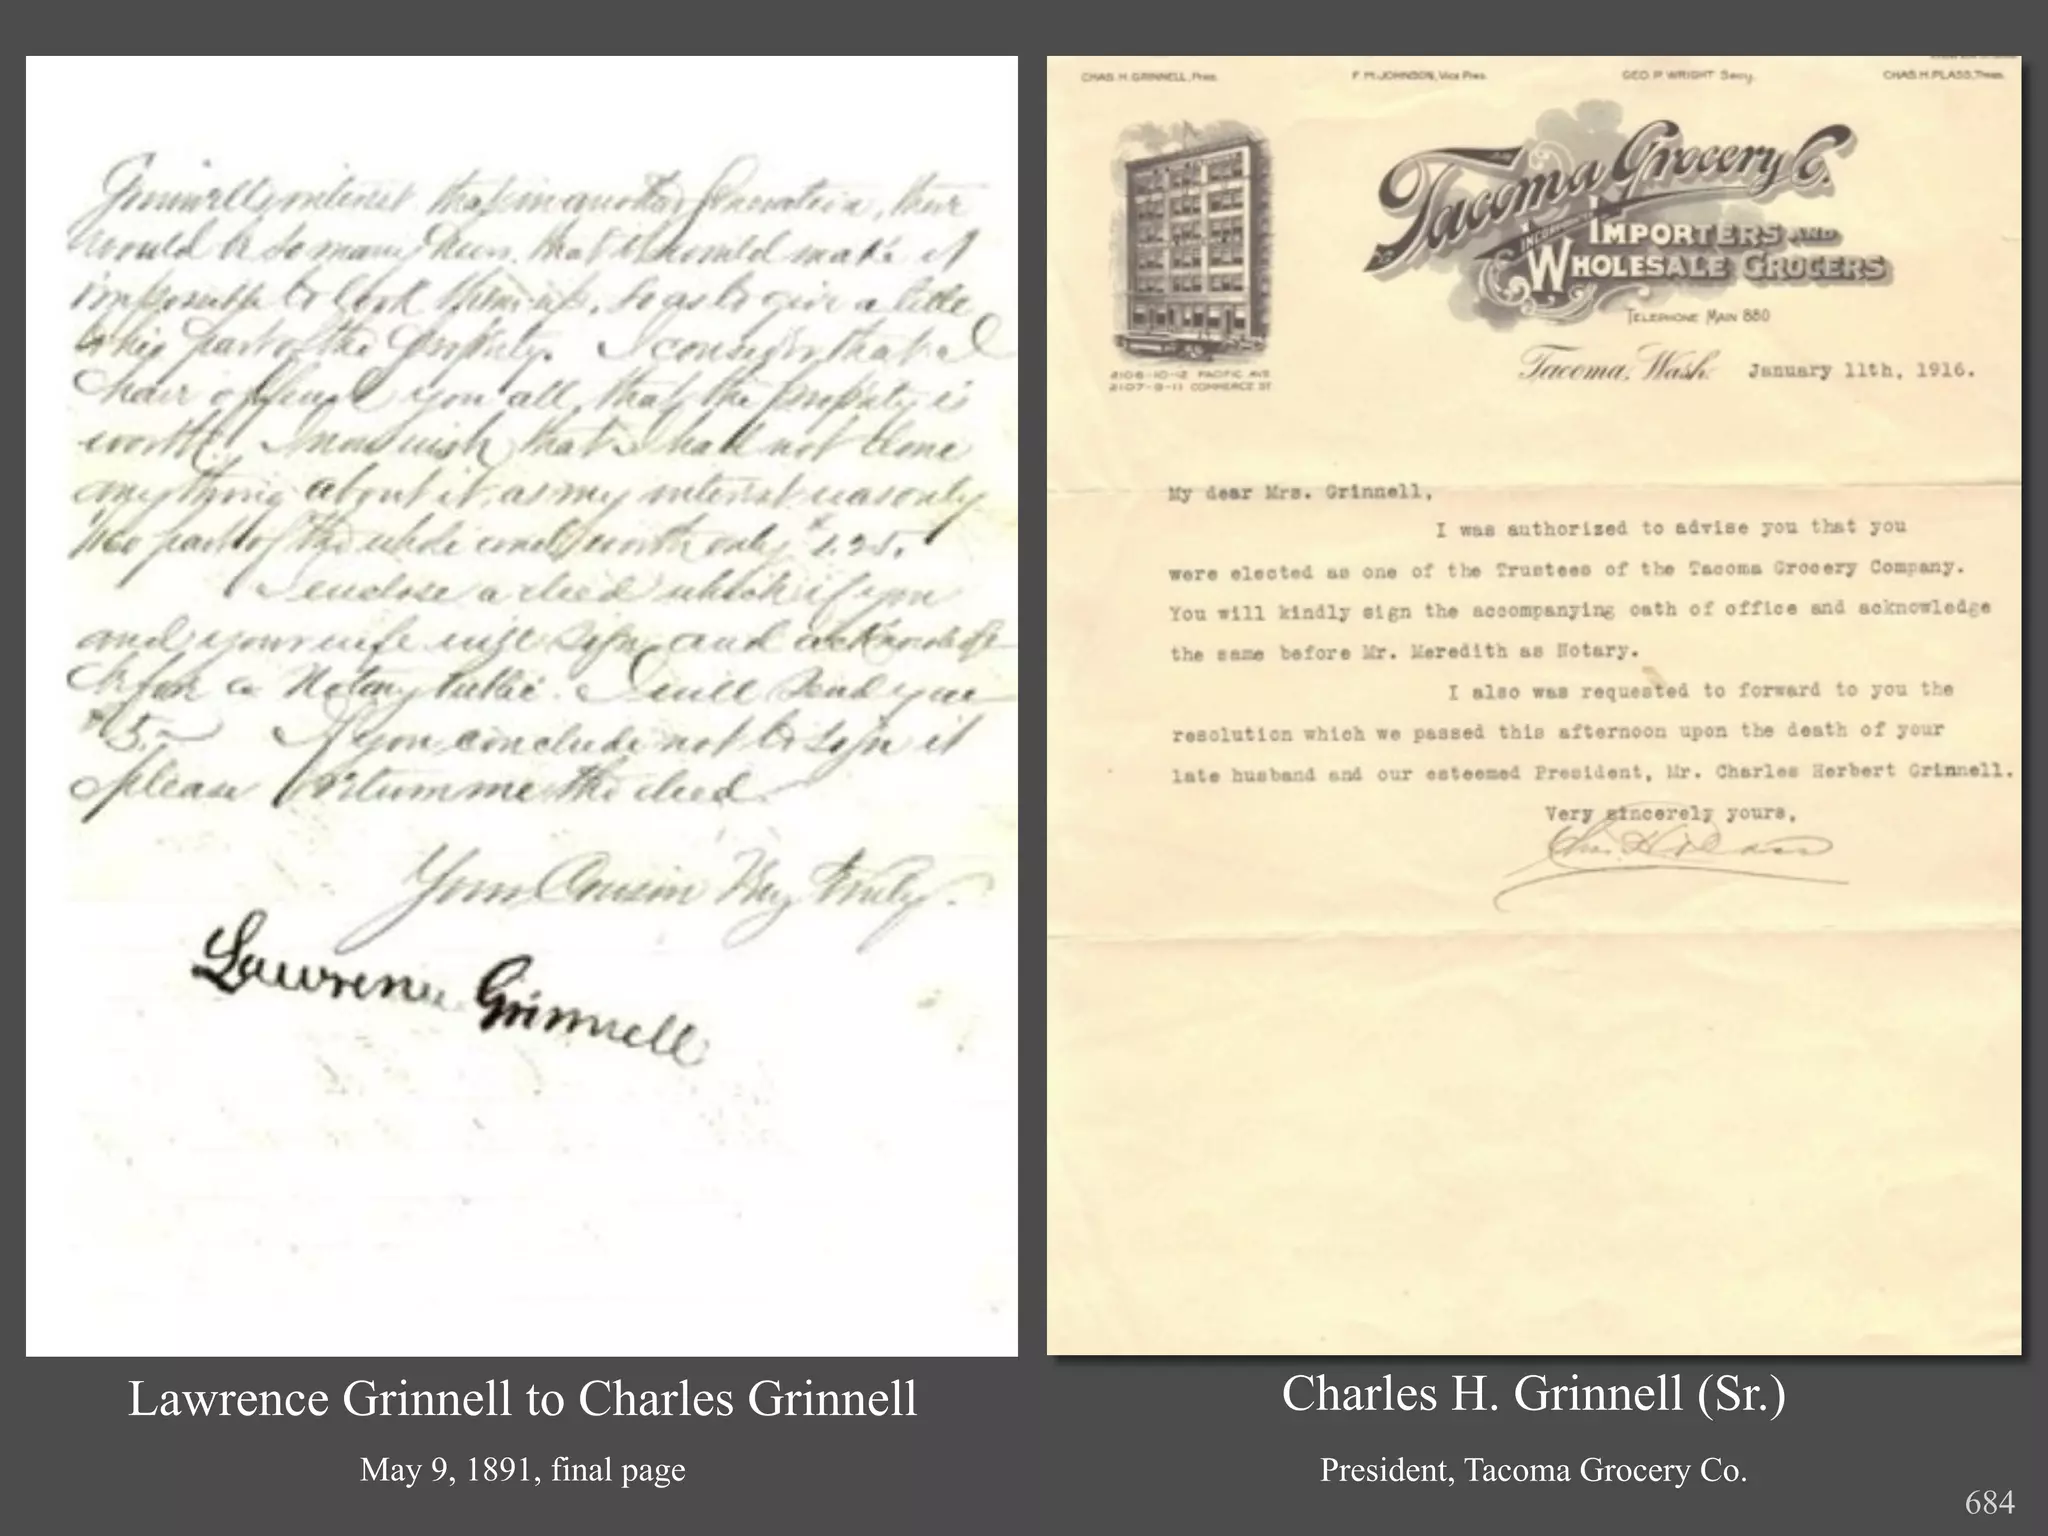 Grinnells interest that in another generation, there
would be so many heirs, that it would make it
impossible to look them up, so as to give a title
to his part of the property. I consider, that I
have offered you all, that the property is
worth. I now wish, that I had not done
anything about it, as my interest was only
1/160 part of the whole and worth only $1.25.
I enclose a deed which if you
and your wife will sign and acknowledge
before a Notary Public I will send you
$5.— If you conclude not to sign it
please return me the deed.
Your Cousin Very Truly.
Lawrence Grinnell
Lawrence Grinnell to Charles Grinnell
May 9, 1891, final page
CHAS. H. GRINNELL, Pres. F. M. JOHNSON, Vice Pres. GEO. P. WRIGHT Secy. CHAS. H. PLASS, Treas.
Tacoma Grocery Co.
INCORPORATED
IMPORTERS AND
WHOLESALE GROCERS
TELEPHONE MAIN 880
2106-10-12 PACIFIC AVE
2107-9-11 COMMERCE ST
Tacoma, Wash. January 11th, 1916.
My dear Mrs. Grinnell,
I was authorized to advise you that you
were elected as one of the Trustees of the Tacoma Grocery Company.
You will kindly sign the accompanying oath of office and acknowledge
the same before Mr. Meredith as Notary.
I also was requested to forward to you the
resolution which we passed this afternoon upon the death of your
late husband and our esteemed President, Mr. Charles Herbert Grinnell.
Very sincerely yours,
Chas. H. Plass
Charles H. Grinnell (Sr.)
President, Tacoma Grocery Co.
684